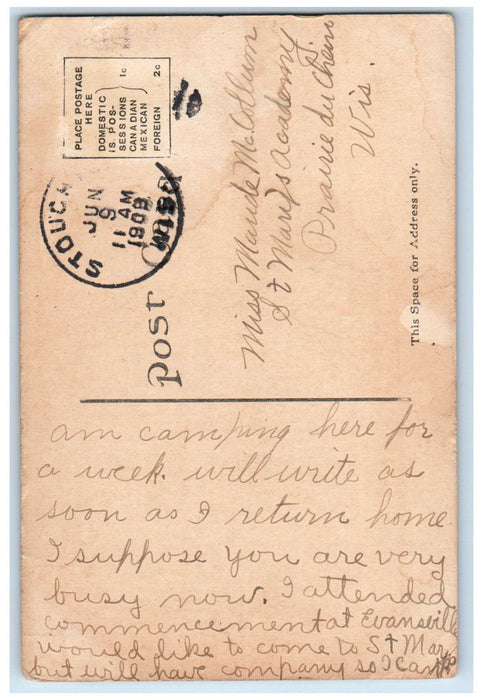 PLACE POSTAGE
HERE
DOMESTIC
IS. POS-
SESSIONS
CANADIAN
MEXICAN
1c
FOREIGN 2c
JUN
9
11 AM
1909
POST
Miss Maude McCollum
St Marys academy
Prairie du Chein
Wis.
This Space for Address only.
am camping here for
a week. will write as
soon as I return home.
I suppose you are very
busy now. I attended
commencement at Evansville
would like to come to St Mary
but will have company so I cant